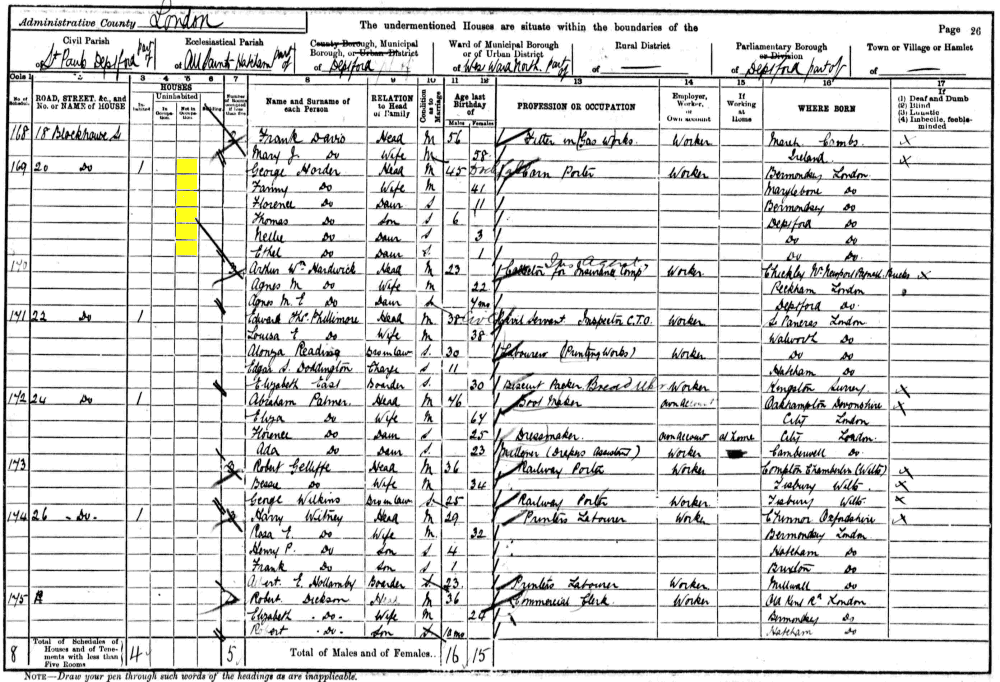 Administrative County London
The undermentioned Houses are situate within the boundaries of the
Page 26
Civil Parish
of St Paul Deptford part of
Ecclesiastical Parish
of All Saints Hatcham part of
County Borough, Municipal Borough, or Urban District
of Deptford
Ward of Municipal Borough or of Urban District
of part of
Rural District
of
Parliamentary Borough or Division
of Deptford part of
Town or Village or Hamlet
of
Cols 1 2 3 4 5 6 7 8 9 10 11 12 13 14 15 16 17
No. of Schedule
ROAD, STREET, &c., and No. or NAME of HOUSE
HOUSES
Inhabited
Uninhabited
In Occupation
Not in Occupation
Building
Number of Rooms occupied if less than five
Name and Surname of each Person
RELATION to Head of Family
Condition as to Marriage
Age last Birthday of
Males Females
PROFESSION OR OCCUPATION
Employer, Worker, or Own account
If Working at Home
WHERE BORN
If (1) Deaf and Dumb (2) Blind (3) Lunatic (4) Imbecile, feeble-minded
168 18 Blockhouse St Frank Davis Head M 56 Fitter in Gas Works Worker March Cambs
Mary J. Do Wife M 58 Ireland
169 20 Do 1 George Horder Head M 45 Corn Porter Worker Bermondsey London
Fanny Do Wife M 41 Marylebone Do
Florence Do Daur S 11 Bermondsey Do
Thomas Do Son S 6 Deptford Do
Nellie Do Daur S 3 Do Do
Ethel Do Daur S 1 Do Do
170 Arthur Wm Hardwick Head M 23 Collector for Insurance Comp Ins Agent Worker Chickley Nr Newport Pagnell Bucks
Agnes M. Do Wife M 22 Peckham London
Agnes M. E Do Daur S 4 mo Deptford Do
171 22 Do 1 Edward Thos Phillimore Head M 38 Civil Servant Inspector C.T.O. Worker St Pancras London
Louisa E Do Wife M 38 Walworth Do
Alonza Reading Bro in law S 30 Labourer (Printing Works) Worker Do Do
Edgar S. Doddington Charge S 11 Hatcham Do
Elizabeth East Boarder S 30 Biscuit Packer Worker Kingston Surrey
172 24 Do 1 Abraham Palmer Head M 76 Boot Maker own account Oakhampton Devonshire
Eliza Do Wife M 64 City London
Florence Do Daur S 25 Dressmaker own account at home City London
Ada Do Daur S 23 Milliner (Drapers Assistant) Worker Camberwell Do
173 Robert Gelliffe Head M 36 Railway Porter Worker Compton Chamberlin (Wilts)
Bessie Do Wife M 34 Tisbury Wilts
George Wilkins Bro in law S 25 Railway Porter Worker Tisbury Wilts
174 26 Do 1 Harry Witney Head M 29 Printers Labourer Worker Chinnor Oxfordshire
Rosa E. Do Wife M 32 Bermondsey London
Henry P. Do Son S 4 Hatcham Do
Frank Do Son S 1 Brixton Do
Albert E Hollamby Boarder S 23 Printers Labourer Worker Millwall Do
175 Robert Dickson Head M 36 Commercial Clerk Worker Old Kent Rd London
Elizabeth Do Wife M 24 Bermondsey Do
Robert Do Son S 10 mo Hatcham Do
8 Total of Schedules of Houses and of Tenements with less than Five Rooms 4 5 Total of Males and of Females.. 16 15
NOTE—Draw your pen through such words of the headings as are inapplicable.